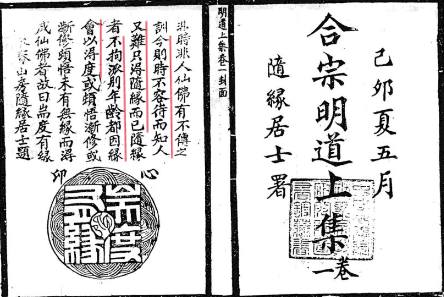 己卯夏五月
合宗明道上集
卷一
隨緣居士署
明道上集卷一 封面
非時非人仙佛有不傳之
訓今則時不容待而知人
又難只得隨緣而已隨緣
者不拘派別年齡都因緣
會以得度或頓悟漸修或
漸修頓悟未有無緣而得
成仙佛者故曰耑度有緣
山房隨緣居士題
心印
耑度有緣